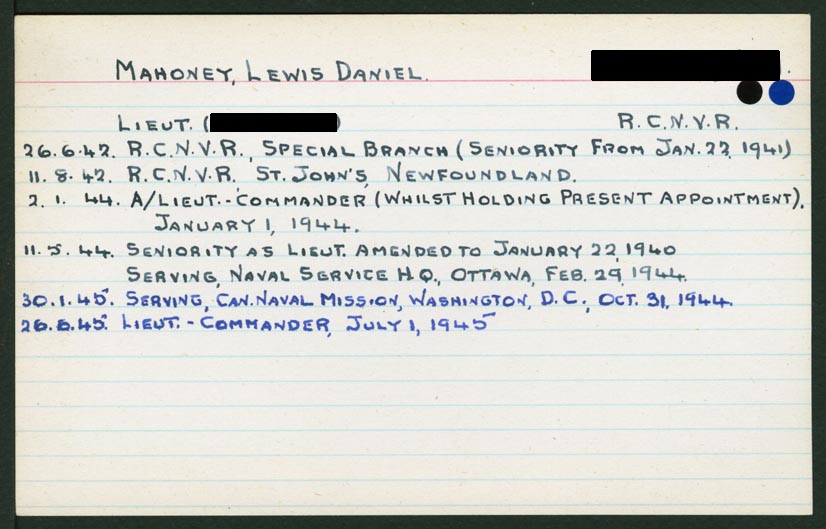 MAHONEY, LEWIS DANIEL.
LIEUT. ( ) R.C.N.V.R.
26.6.42. R.C.N.V.R., SPECIAL BRANCH (SENIORITY FROM JAN. 22, 1941)
11. 8. 42. R.C.N.V.R. ST. JOHN'S, NEWFOUNDLAND.
2. 1. 44. A/LIEUT.-COMMANDER (WHILST HOLDING PRESENT APPOINTMENT),
JANUARY 1, 1944.
11. 5. 44. SENIORITY AS LIEUT. AMENDED TO JANUARY 22, 1940
SERVING, NAVAL SERVICE H.Q., OTTAWA, FEB. 29, 1944.
30.1.45. SERVING, CAN. NAVAL MISSION, WASHINGTON, D.C., OCT. 31, 1944.
LIEUT.-COMMANDER, JULY 1, 1945